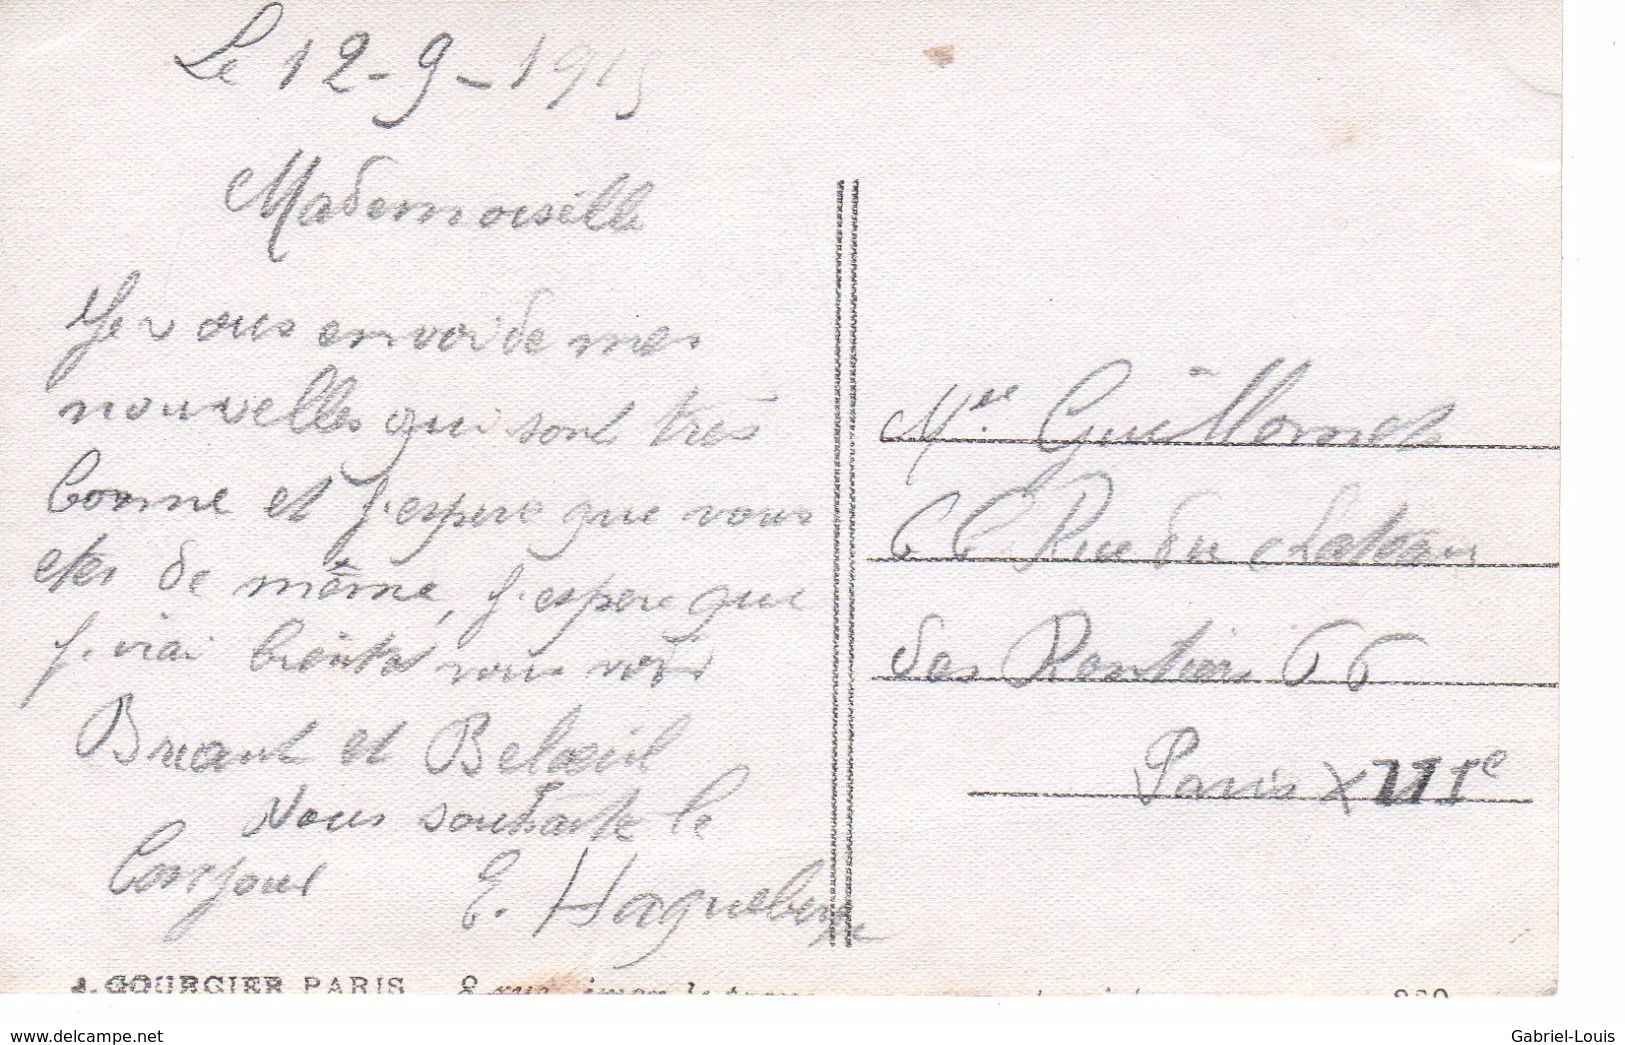 Le 12-9-1915
Mademoiselle
Je vous envoi de mes
nouvelles qui sont très
bonne et j'espere que vous
etes de même, j'espere que
j'irai bientot vous voir
Briant et Belœil
Vous souhaite le
bonjour E. Haguebergue
Mlle Guillomet
66 Rue du chateau
des Rentiers 66
Paris XIIIe
J. COURCIER PARIS 8 rue
www.delcampe.net
Gabriel-Louis